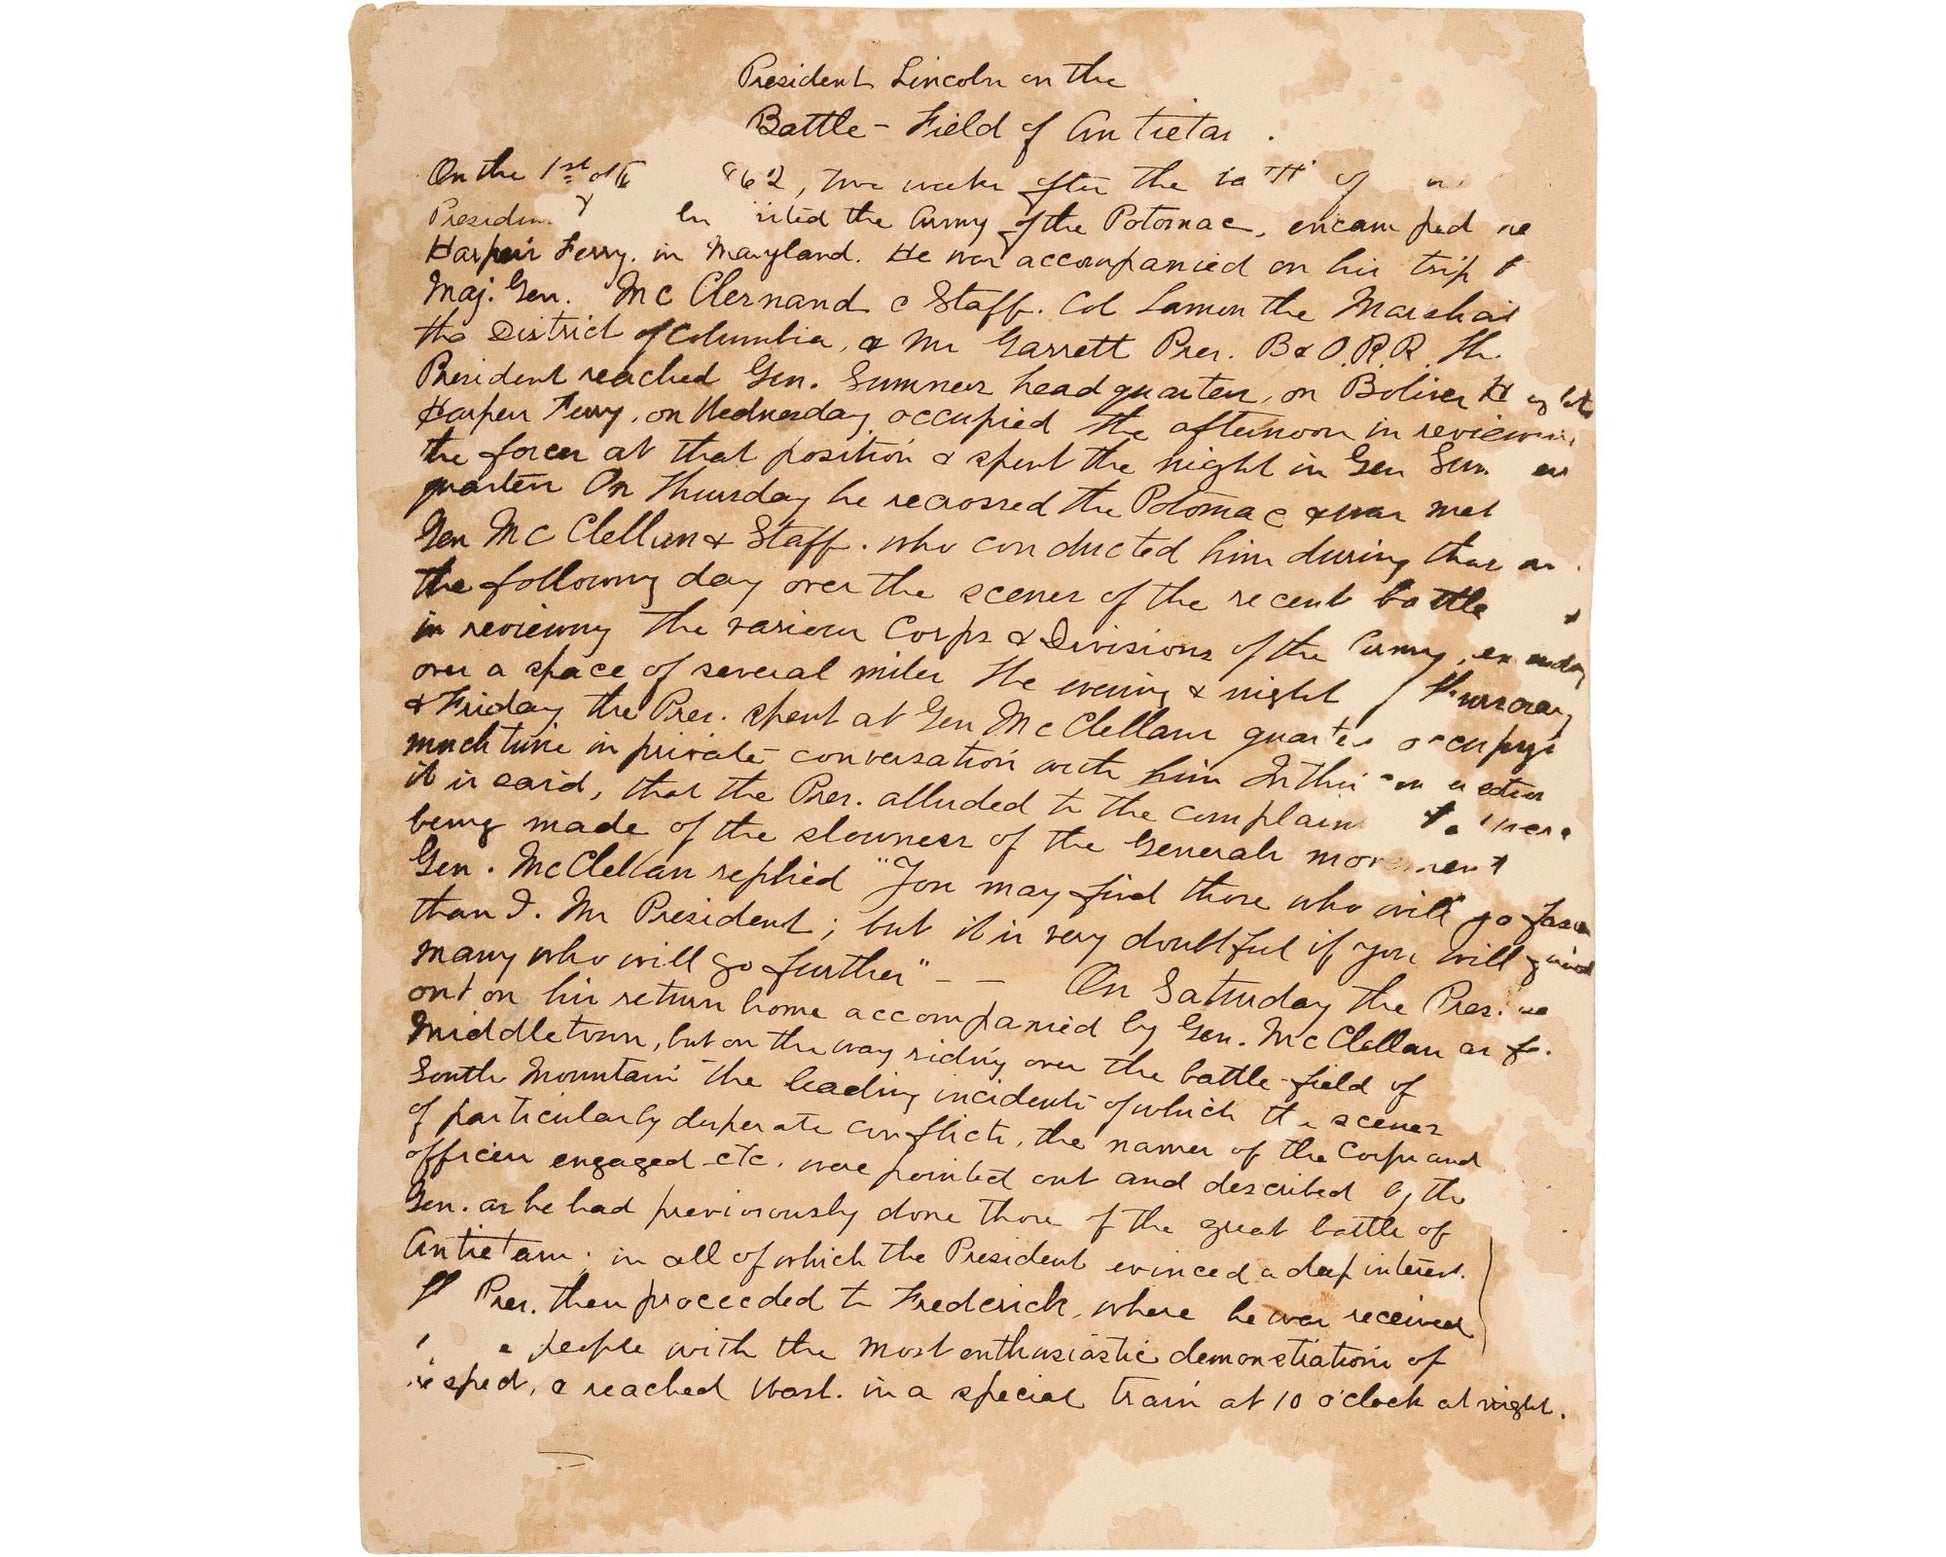 President Lincoln on the
Battle - Field of Antietam.
On the 1st of 62, two weeks after the of
President visited the Army of the Potomac, encamped
Harper's Ferry. in Maryland. He was accompanied on his trip
Maj. Gen. McClernand & Staff. Col Lamon the Marshal
the District of Columbia, & Mr Garrett Pres. B & O. R R. The
President reached Gen. Sumners headquarters, on Boliver Heights
Harpers Ferry, on Wednesday, occupied the afternoon in reviewing
the forces at that position & spent the night in Gen
quarters On Thursday he recrossed the Potomac & was met
Gen McClellan & Staff. who conducted him during that
the following day over the scenes of the recent battle &
in reviewing the various Corps & Divisions of the Army,
over a space of several miles The evening & night Thursday
& Friday the Pres. spent at Gen McClellans quarters occupyi
much time in private conversation with him In this
it is said, that the Pres. alluded to the complain were
being made of the slowness of the Generals movement
Gen. McClellan replied "You may find those who will go
than I. Mr President; but it is very doubtful if you will find
many who will go further" - - On Saturday the Pres.
out on his return home accompanied by Gen. McClellan as
Middletown, but on the way riding over the battle-field of
South Mountain the leading incidents of which the scenes
of particularly desperate conflicts, the names of the Corps and
officers engaged etc. were pointed out and described by the
Gen. as he had previously done those of the great battle of
Antietam; in all of which the President evinced a deep interest.
Pres. then proceeded to Frederick, where he was received
people with the most enthusiastic demonstrations of
respect, & reached Wash. in a special train at 10 o'clock at night.